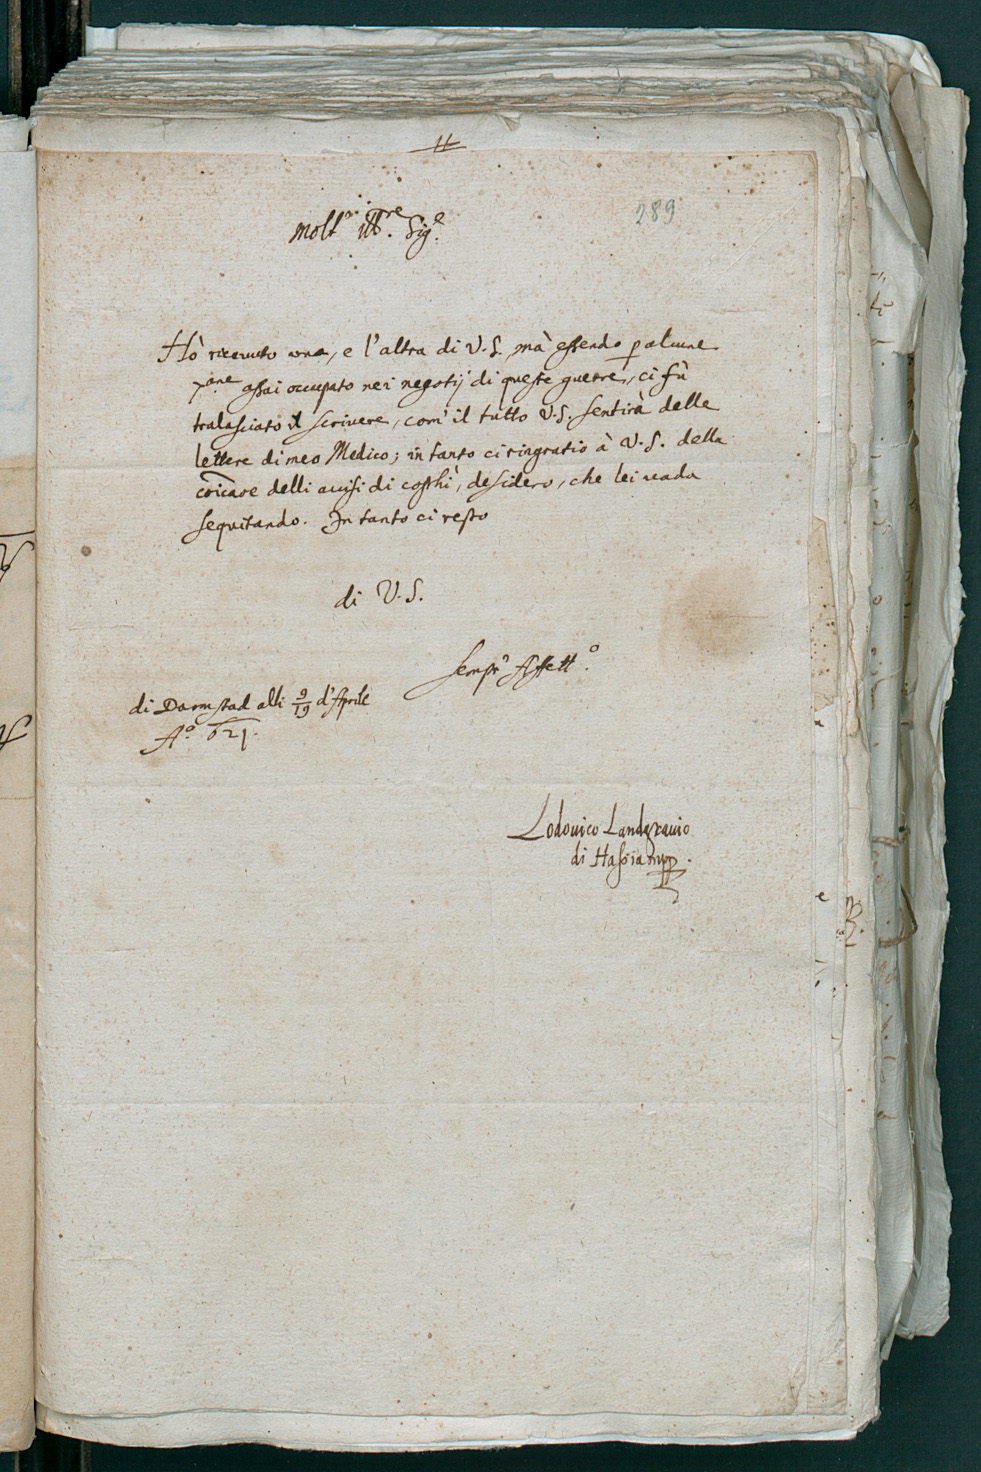 289
Molt' ill.re Sig.e
Hò riceuuto una, e l'altra di V.S. mà essendo p alcune
assai occupato nei negotij di queste guerre, ci fù
tralasciato il scriuere, com' il tutto V.S. sentirà delle
lettere di meo Medico; in tanto ci ringratio à V.S. della
delli auisi di costhì, desidero, che lei uada
sequitando. In tanto ci resto
di V.S.
Semp.r Affett.o
di Darmstad alli 9/19 d'Aprile
A.o 621.
Lodouico Landgrauio
di Hassia mpp.